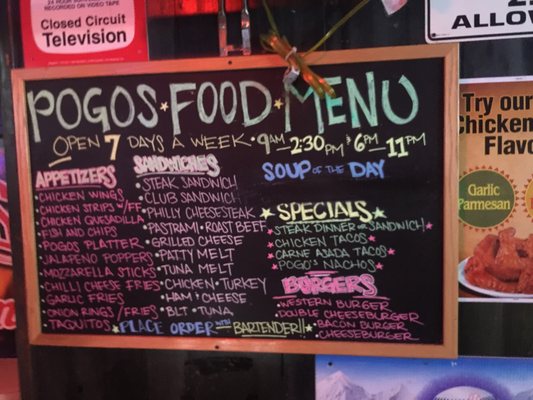 RECORDED ON VIDEO TAPE
Closed Circuit
Television
ALLOW
POGOS · FOOD · MENU
OPEN 7 DAYS A WEEK · 9AM - 2:30PM & 6PM - 11PM
APPETIZERS
• CHICKEN WINGS
• CHICKEN STRIPS /FF
• CHICKEN QUESADILLA
• FISH AND CHIPS
• POGOS PLATTER
• JALAPENO POPPERS
• MOZZARELLA STICKS
• CHILLI CHEESE FRIES
• GARLIC FRIES
• ONION RINGS / FRIES
• TAQUITOS
SANDWICHES
• STEAK SANDWICH
• CLUB SANDWICH
• PHILLY CHEESESTEAK
• PASTRAMI • ROAST BEEF
• GRILLED CHEESE
• PATTY MELT
• TUNA MELT
• CHICKEN • TURKEY
• HAM • CHEESE
• BLT • TUNA
SOUP OF THE DAY
SPECIALS
STEAK DINNER OR SANDWICH
CHICKEN TACOS
CARNE ASADA TACOS
POGO'S NACHOS
BURGERS
• WESTERN BURGER
• DOUBLE CHEESEBURGER
• BACON BURGER
• CHEESEBURGER
PLACE ORDER WITH BARTENDER!!
Try our
Chicken
Flavo
Garlic
Parmesan